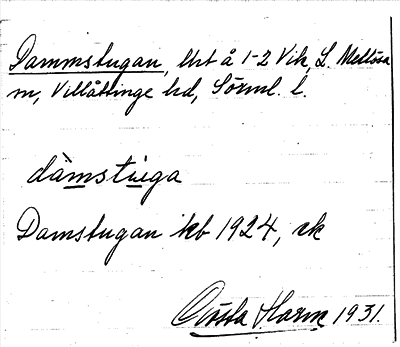 Dammstugan, lht å 1-2 Vik, L. Mellösa
sn, Villåttinge hd, Sörml. l.
dàmstùga
Damstugan kb 1924, ek
Gösta Harm 1931.